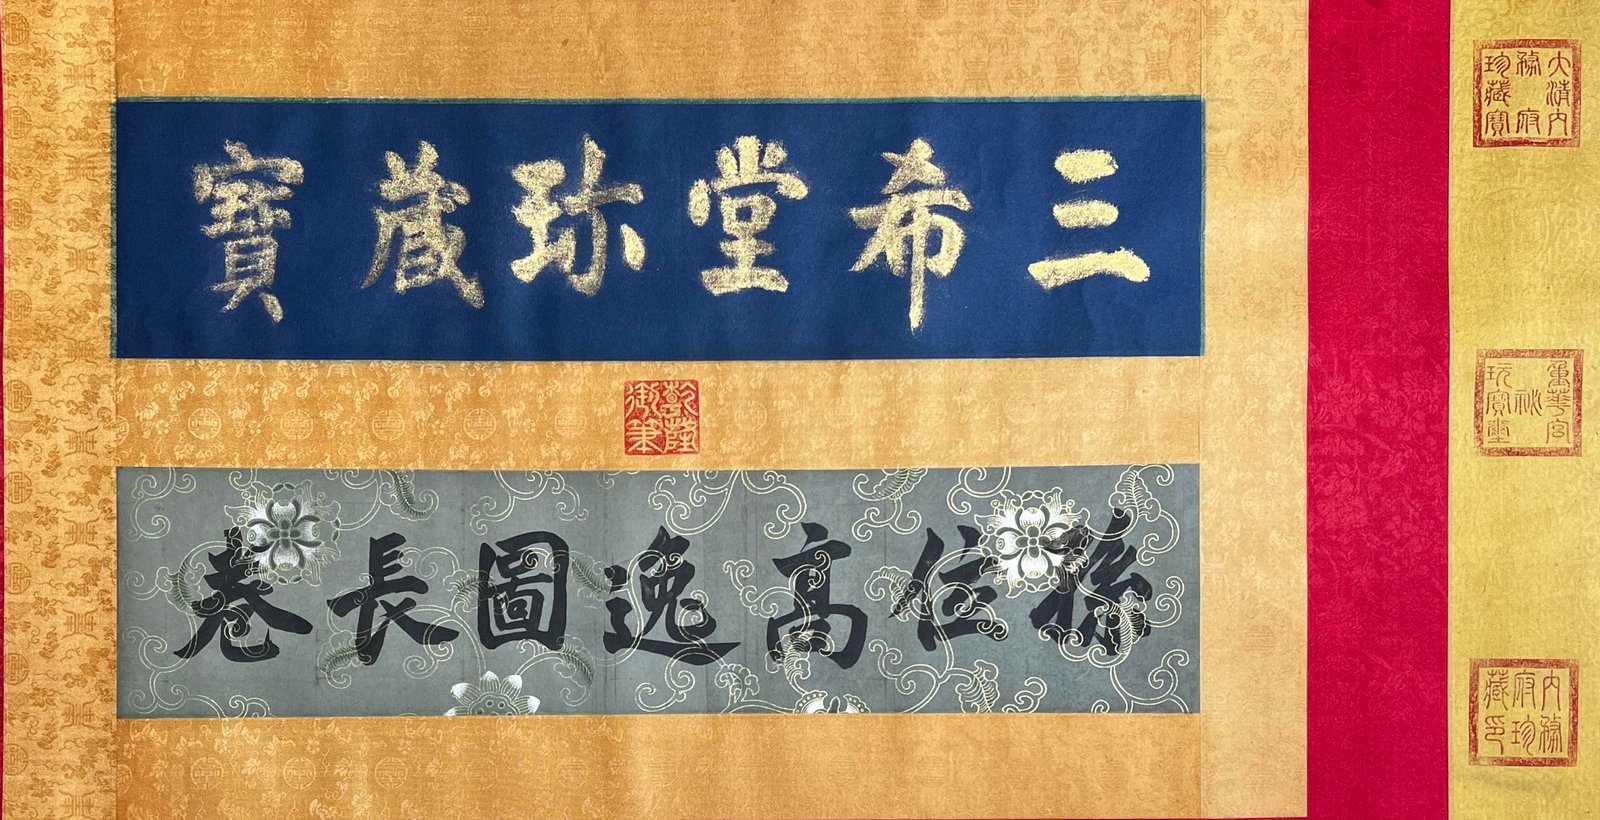 大清內務府珍藏寶
重華宮祕玩寶璽
內務府珍藏印
三希堂珎藏寶
乾隆御筆
孫位高逸圖長卷